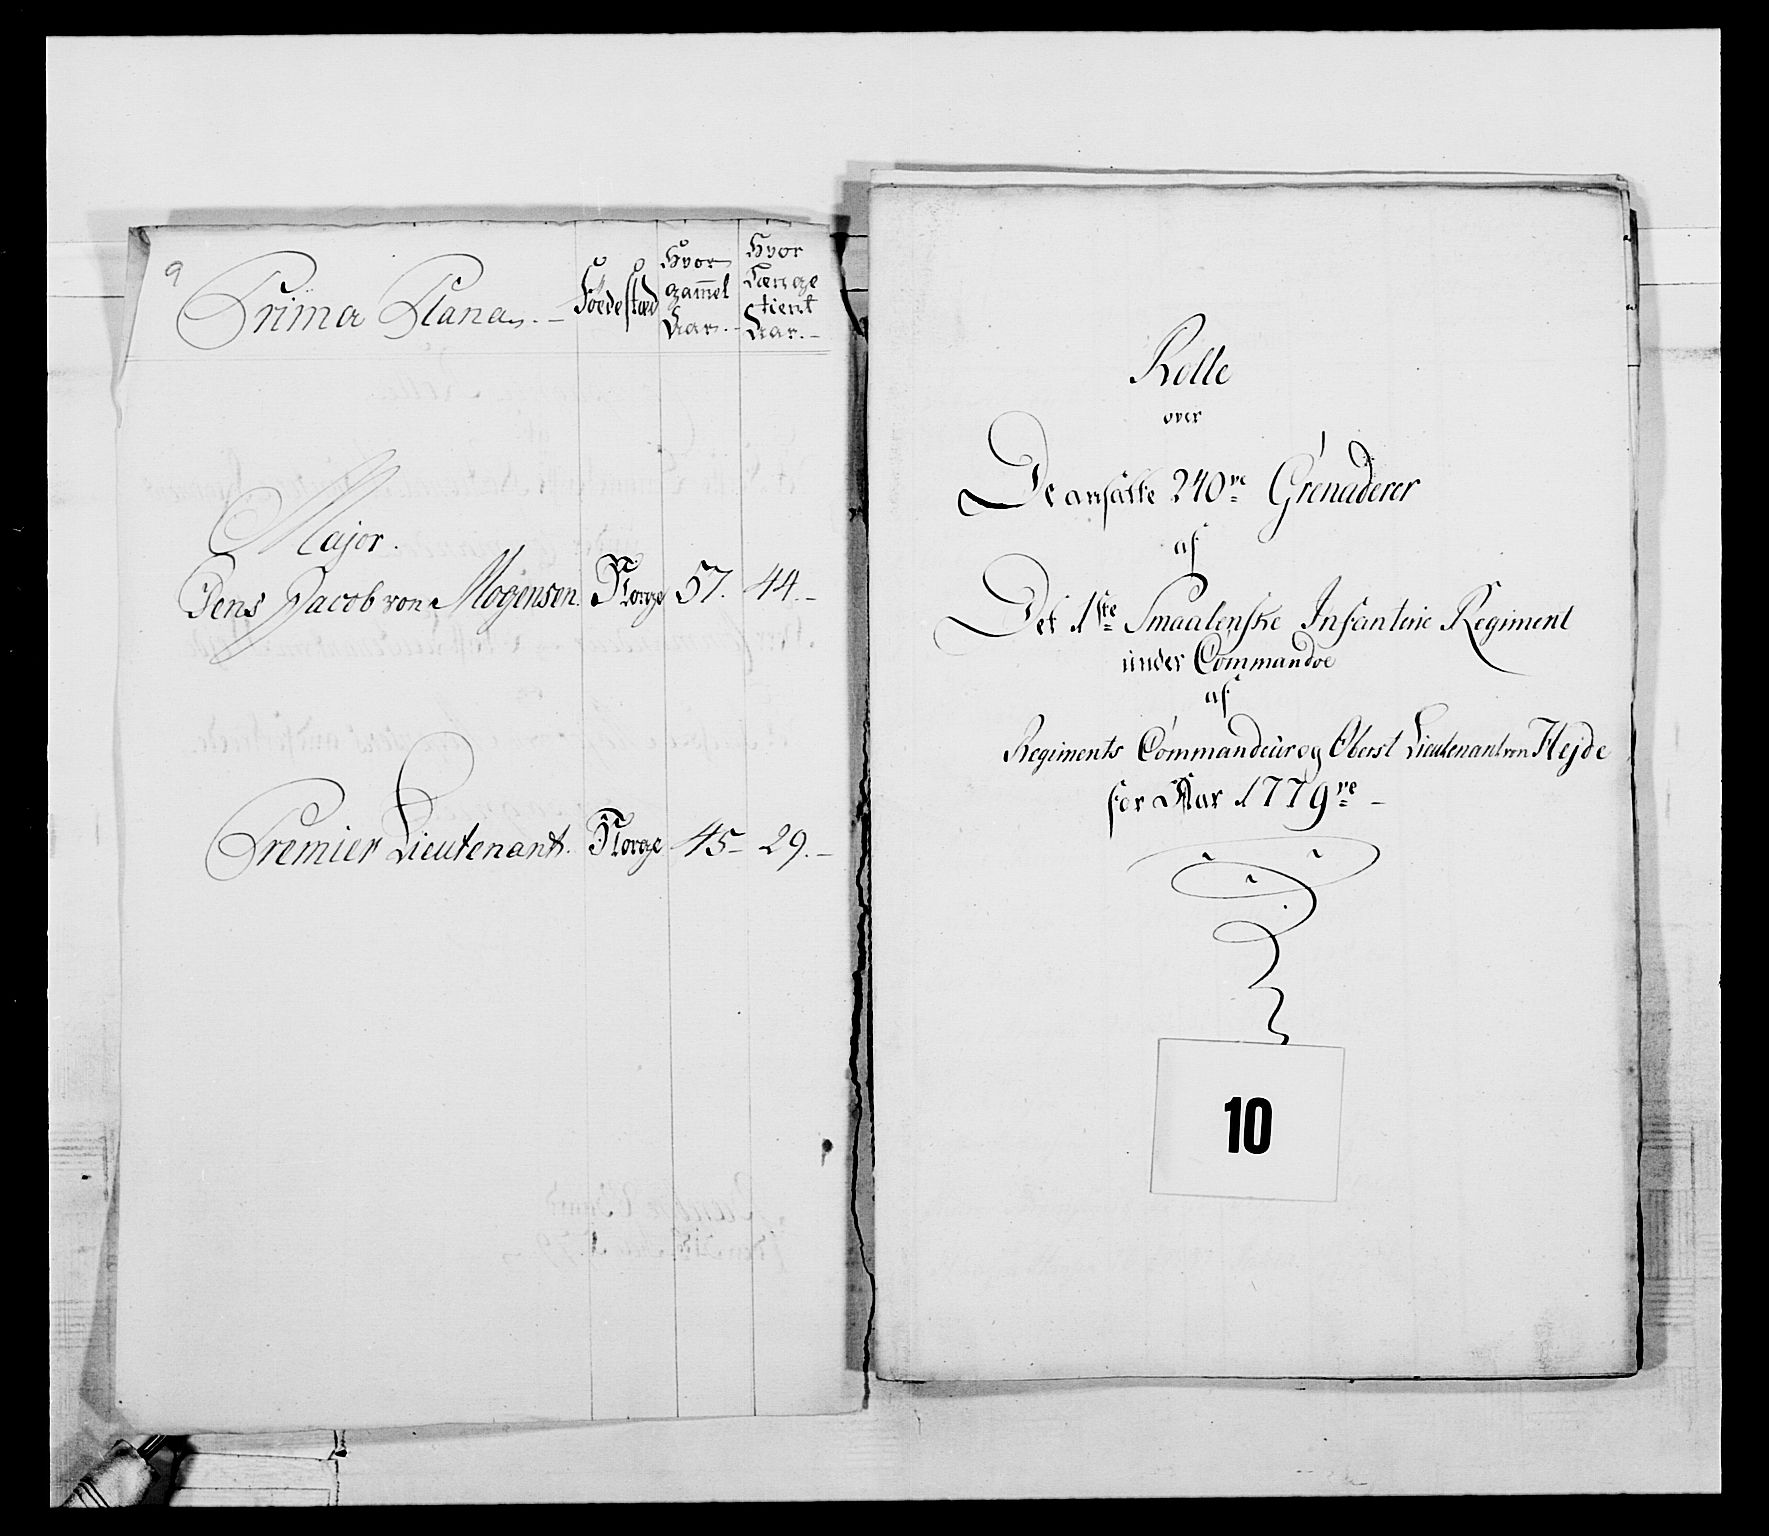 9
Prima Plana. –
Föedestæd
Hvor
gam̅el
Aar. –
Hvor
Længe
tient
Aar. –
Major.
Jens Jacob von Mogensen. Norge 57. 44. –
Premier Lieutenant. Norge 45 – 29. –
Rolle
over
De ansatte 240ve Grenaderer
af
Det 1ste Smaalenske Infanterie Regiment
under Commandoe
af
Regiments Commandeur og Oberst Lieutenant von Hejde
for Aar 1779ve –
10